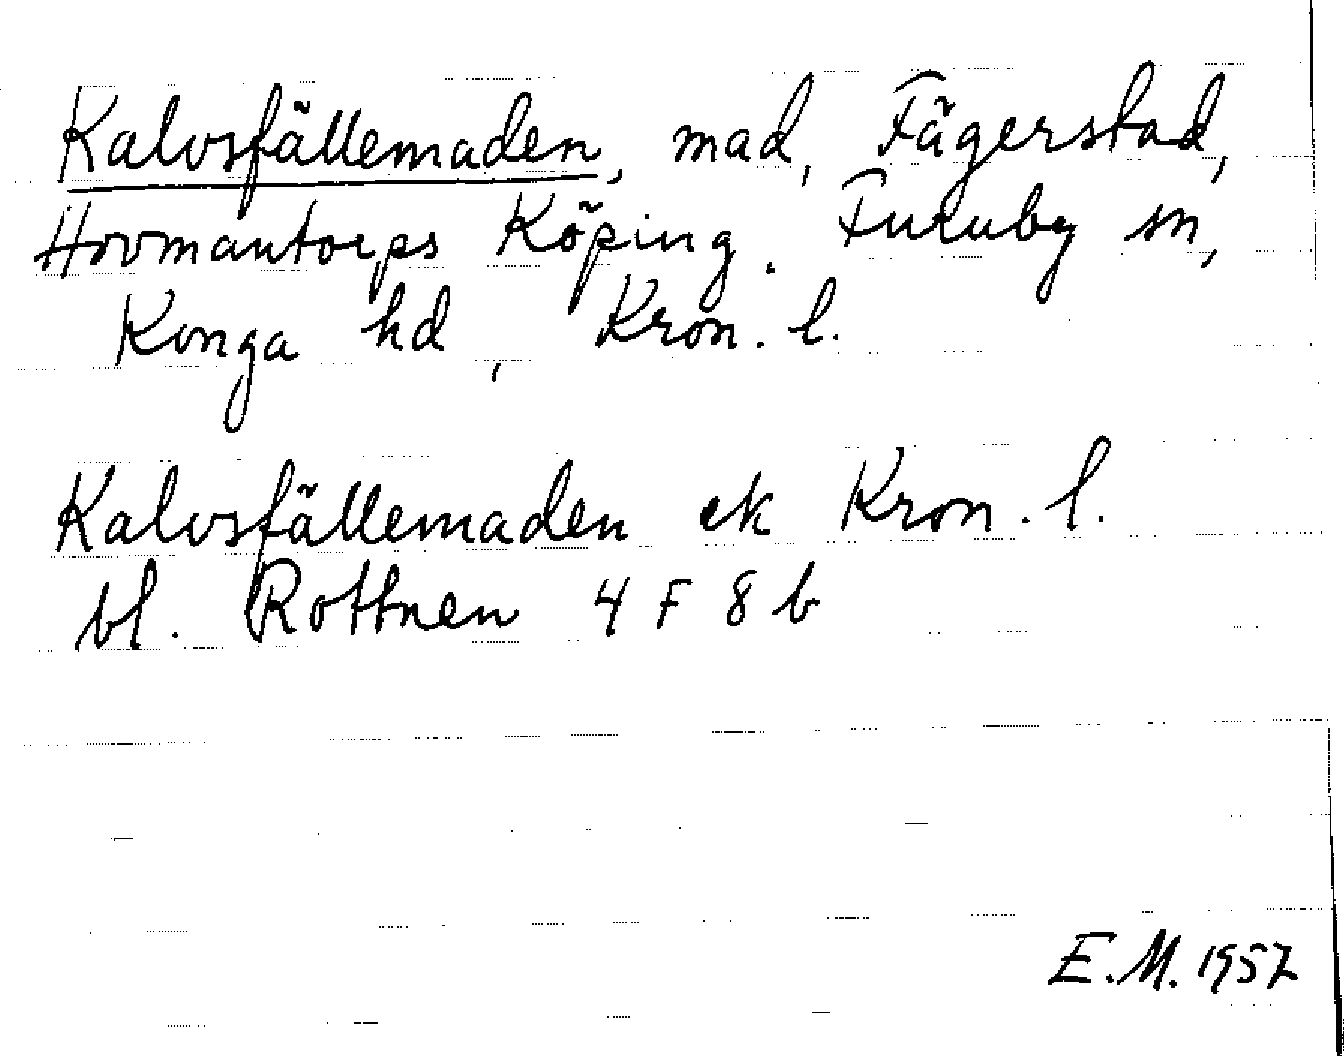 Kalvsfällemaden, mad, Fägerstad,
Hovmantorps Köping. Furuby sn,
Konga hd, Kron. l.
Kalvsfällemaden ek Kron. l.
bl. Rottnen 4 F 8 b
E.M. 1957